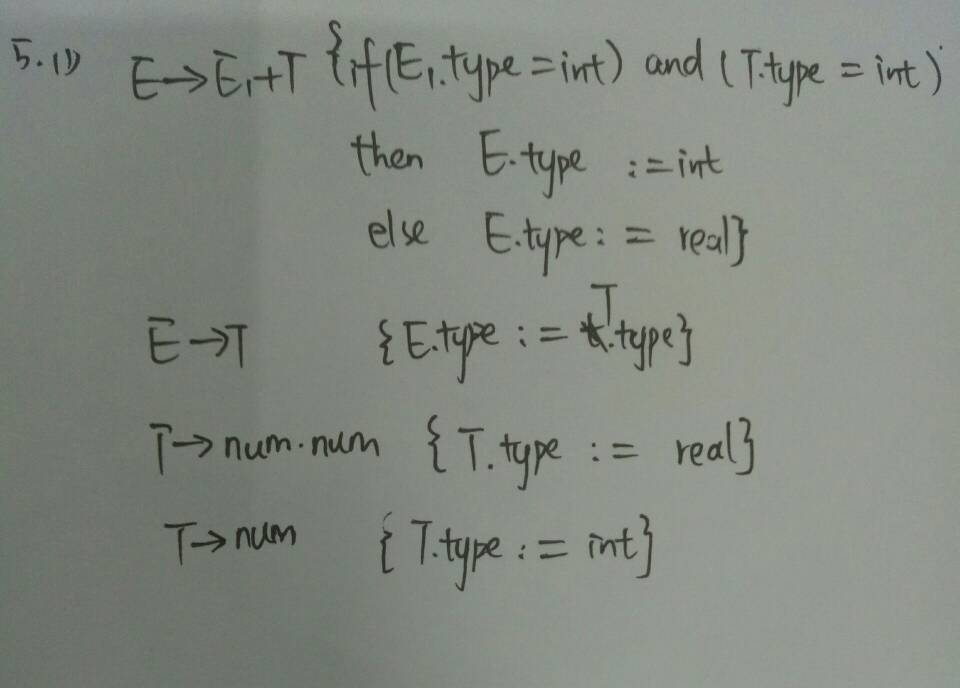 5.(1) E→E₁+T {if(E₁.type=int) and (T.type = int)
then E.type :=int
else E.type := real}
E→T {E.type := T.type}
T→num.num {T.type := real}
T→num {T.type := int}